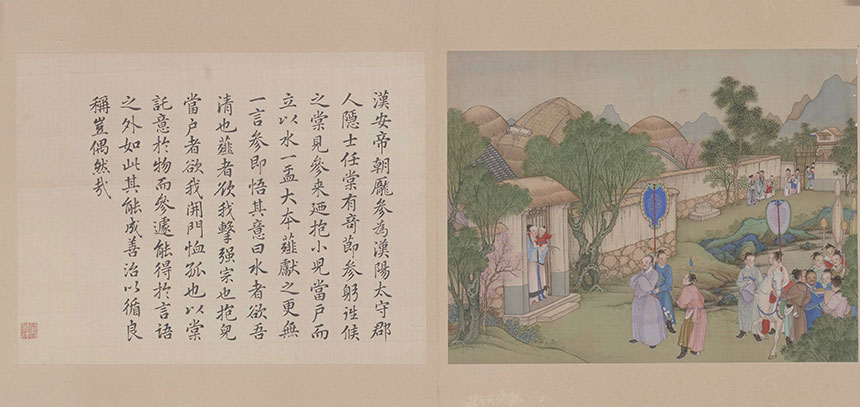 漢安帝朝龐參為漢陽太守郡
人隱士任棠有奇節參躬往候
之棠見參来廼抱小児當戶而
立以水一盂大本薤獻之更無
一言參即悟其意曰水者欲吾
清也薤者欲我擊强宗也抱兒
當戶者欲我開門恤孤也以棠
託意於物而參遽能得於言語
之外如此其能成善治以循良
稱豈偶然哉